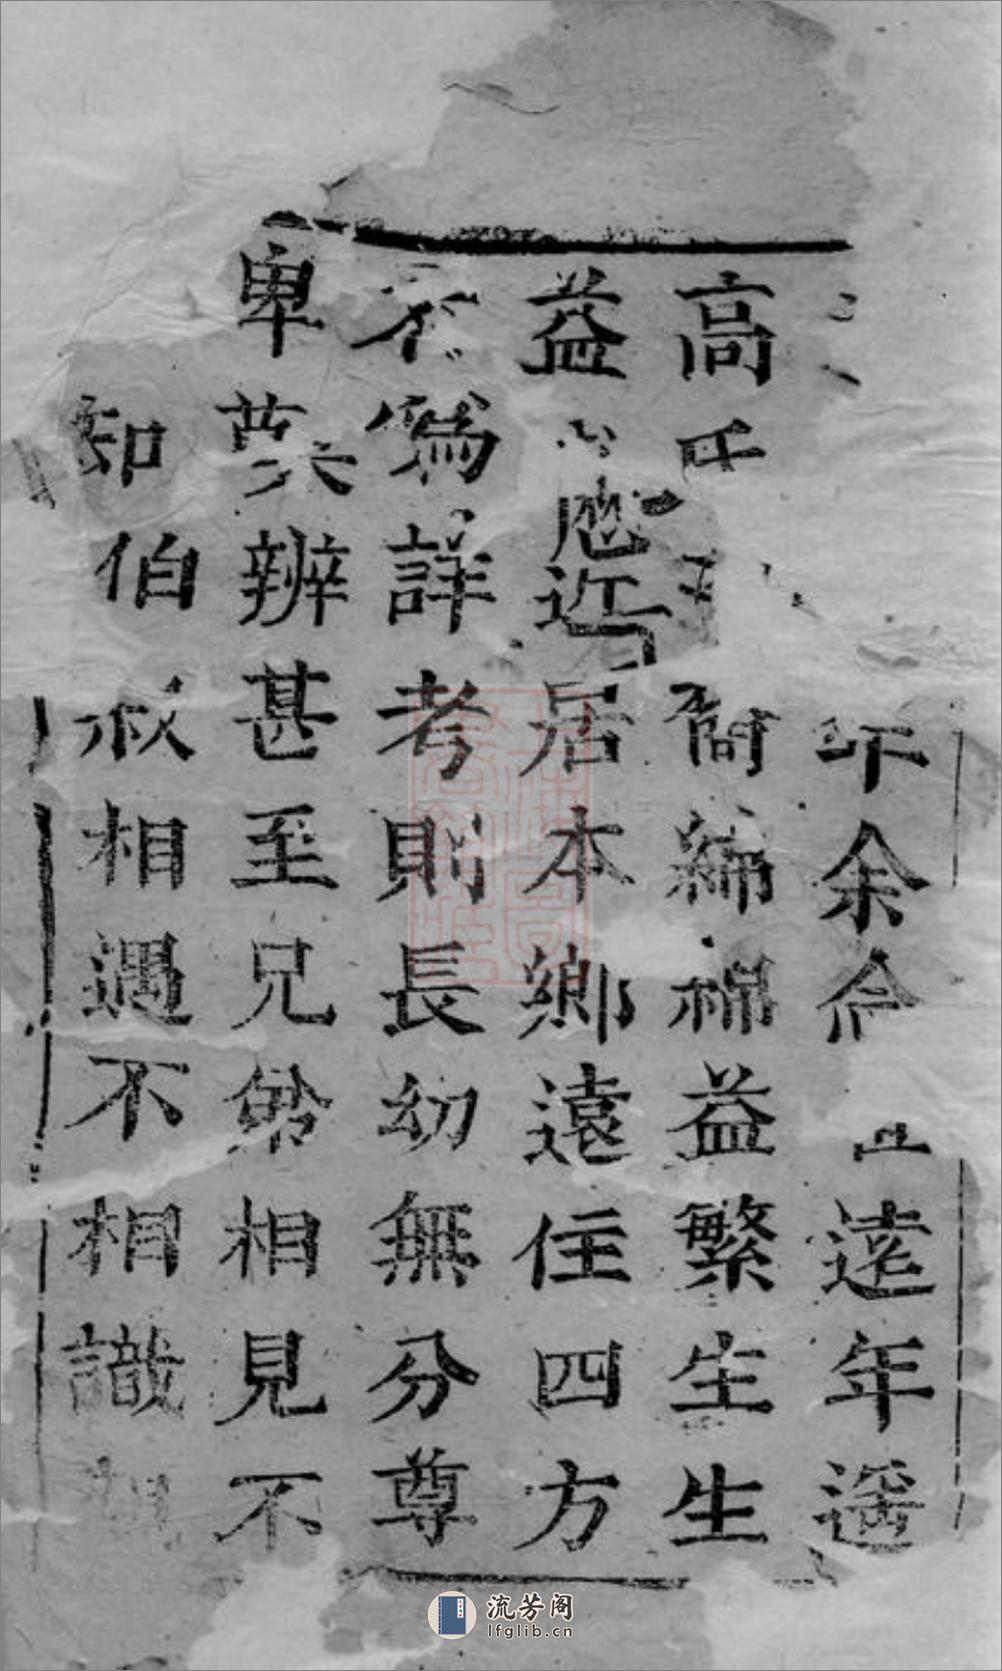 年余 遠年遥
高氏 裔綿綿益繁生生
益 近居本鄉遠住四方
不為詳考則長幼無分尊
卑莫辨甚至兄弟相見不
知伯叔相遇不相識
流芳阁
lfglib.cn